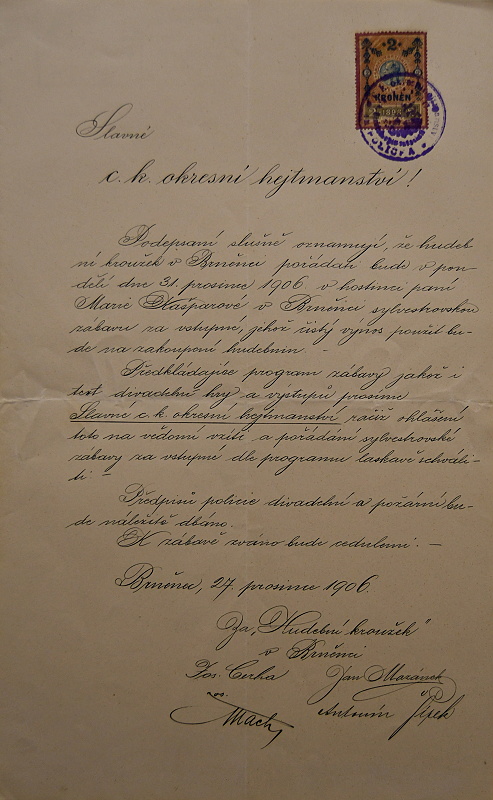 2
KRONEN
1898
POLIČKA
Slavné
c. k. okresní hejtmanství!
Podepsaní slušně oznamují, že hudeb
ní kroužek v Brněnci pořádati bude v pon-
dělí dne 31. prosince 1906 v hostinci paní
Marie Kašparové v Brněnci sylvestrovskou
zábavu za vstupné, jehož čistý výnos použit bu-
de na zakoupení hudebnin. -
Předkládajíce program zábavy jakož i
text divadelní hry a výstupů prosíme
Slavné c. k. okresní hejtmanství račiž ohlášení
toto na vědomí vzíti a pořádání sylvestrovské
zábavy za vstupné dle programu laskavě schváli-
ti -
Předpisů policie divadelní a požární bu-
de náležitě dbáno.
K zábavě zváno bude cedulemi. -
Brněnec, 27. prosince 1906.
Za „Hudební kroužek"
v Brněnci
Jos. Cerha Jan Mazánek
Jos. Mach Antonín Pípek